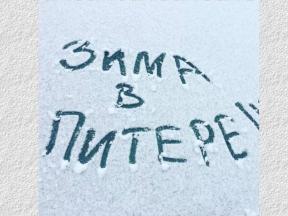 ЗИМА
В
ПИТЕРЕ!!